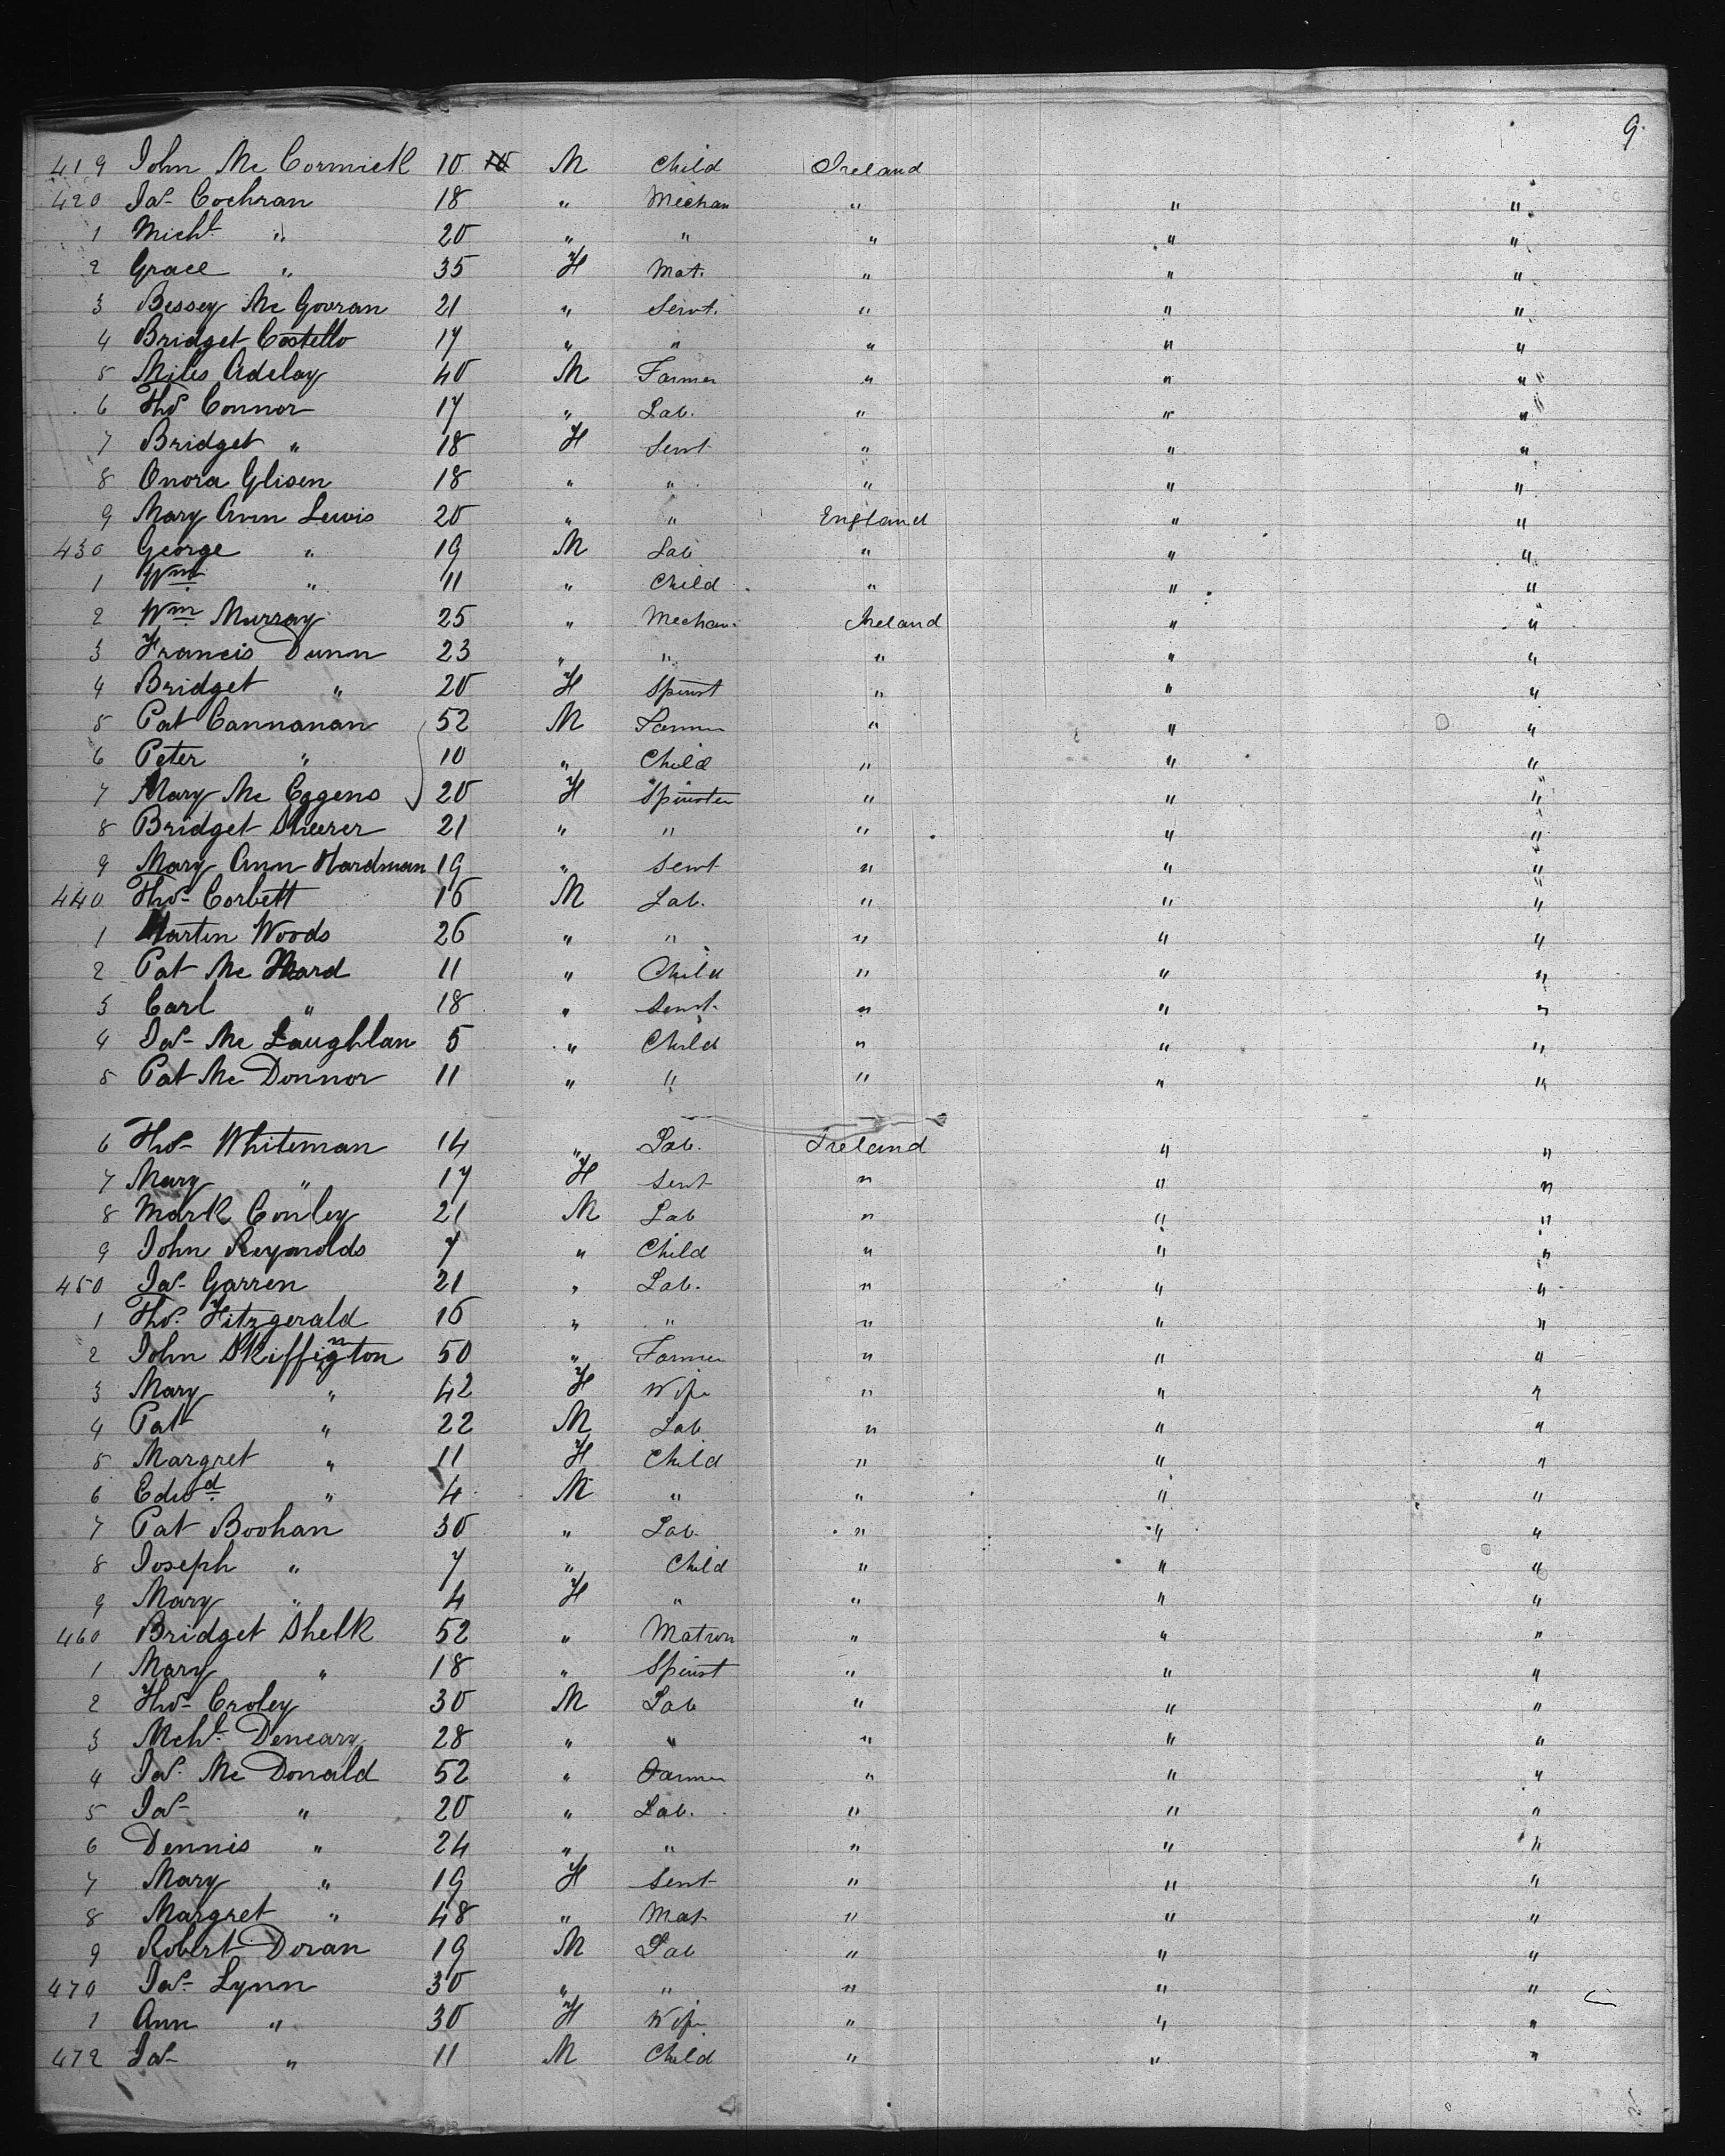 9.
419 John Mc Cormick 10 M Child Ireland
420 Jas Cochran 18 " Mechan " " "
1 Michl " 20 " " " " "
2 Grace " 35 F Mat. " " "
3 Bessey Mc Govran 21 " Servt. " " "
4 Bridget Costello 17 " " " " "
5 Miles Adelay 40 M Farmer " " "
6 Thos Connor 17 " Lab. " " "
7 Bridget " 18 F Servt " " "
8 Onora Glisen 18 " " " " "
9 Mary Ann Lewis 20 " " England " "
430 George " 19 M Lab " " "
1 Wm " 11 " Child " " "
2 Wm Murray 25 " Mechan. Ireland " "
3 Francis Dunn 23 " " " " "
4 Bridget " 20 F Spinst " " "
5 Pat Cannanan 52 M Farmer " " "
6 Peter " 10 " Child " " "
7 Mary Mc Eggens 20 F Spinster " " "
8 Bridget Sheerer 21 " " " " "
9 Mary Ann Hardman 19 " Servt " " "
440 Thos Corbett 16 M Lab. " " "
1 Martin Woods 26 " " " " "
2 Pat Mc Ward 11 " Child " " "
3 Carl " 18 " Servt. " " "
4 Jas Mc Laughlan 5 " Child " " "
5 Pat Mc Donnor 11 " " " " "
6 Thos Whiteman 14 " Lab. Ireland " "
7 Mary " 17 F Servt " " "
8 Mark Conley 21 M Lab " " "
9 John Reynolds 7 " Child " " "
450 Jas Garren 21 " Lab. " " "
1 Thos. Fitzgerald 16 " " " " "
2 John Skiffington 50 " Farmer " " "
3 Mary " 42 F Wife " " "
4 Pat " 22 M Lab " " "
5 Margret " 11 F Child " " "
6 Edwd " 4 M " " " "
7 Pat Boohan 30 " Lab. " " "
8 Joseph " 7 " Child " " "
9 Mary " 4 F " " " "
460 Bridget Shelk 52 " Matron " " "
1 Mary " 18 " Spinst " " "
2 Thos Croley 30 M Lab " " "
3 Mchl Deneary 28 " " " " "
4 Jas. Mc Donald 52 " Farmer " " "
5 Jas " 20 " Lab. " " "
6 Dennis " 24 " " " " "
7 Mary " 19 F Servt " " "
8 Margret " 48 " Mat " " "
9 Robert Doran 19 M Lab " " "
470 Jas Lynn 30 " " " " "
1 Ann " 30 F Wife " " "
472 Jas " 11 M Child " " "